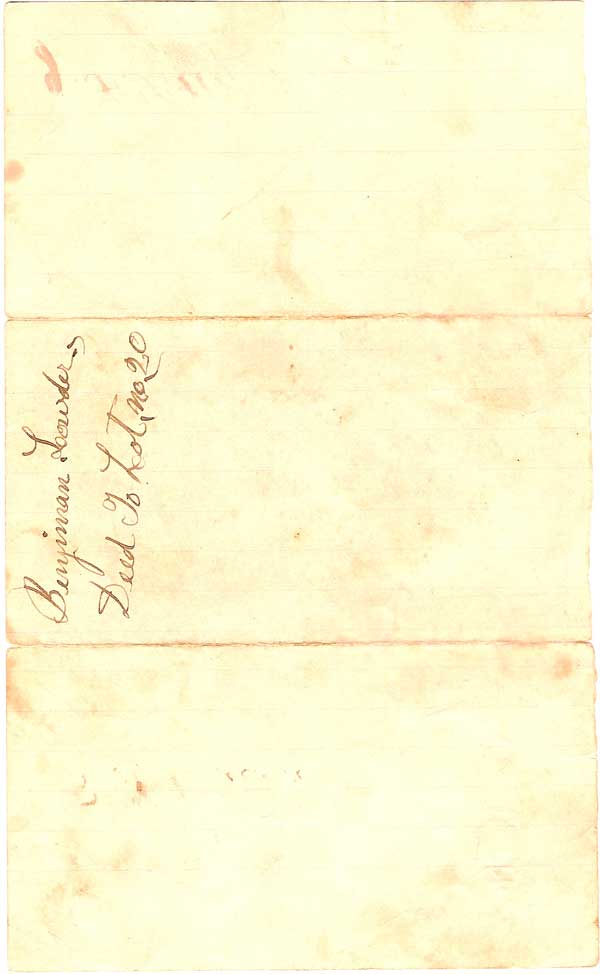 Benjiman Lowder,s
Deed To Lot, no, 20